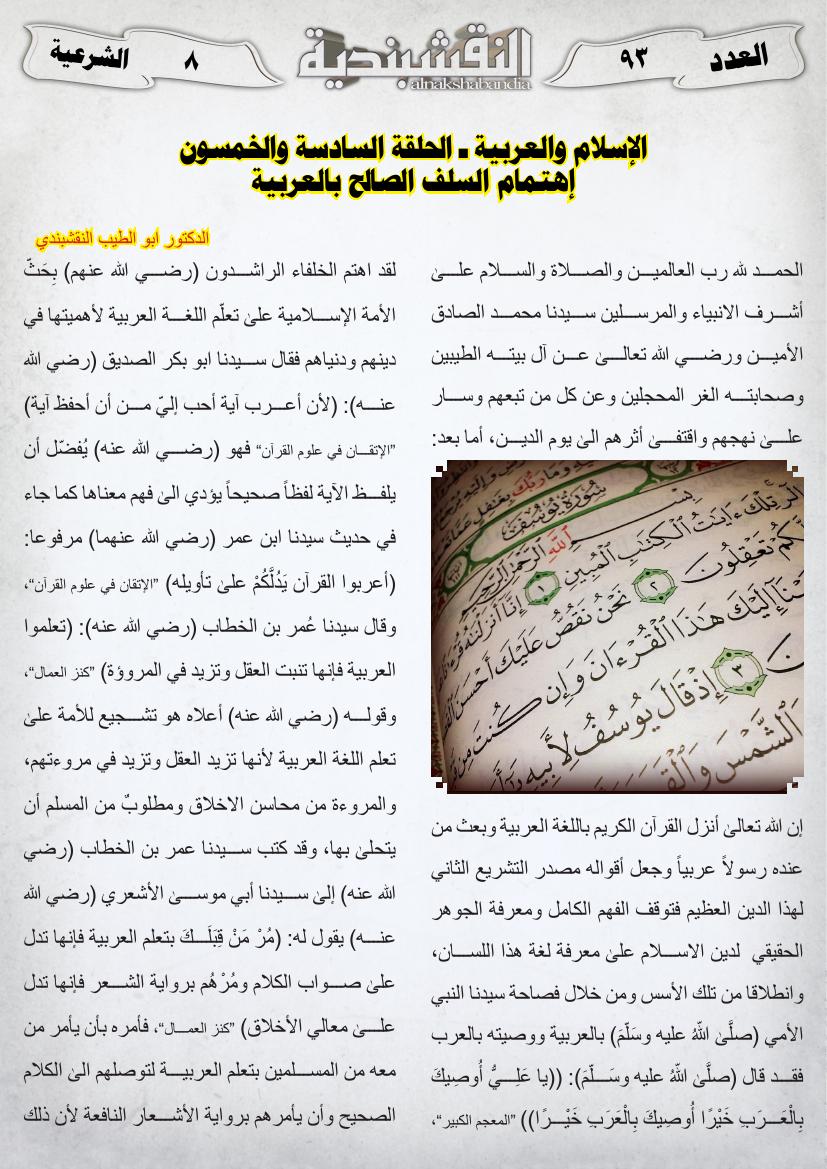 العدد
٩٣
النقشبندية
alnakshabandia
٨
الشرعية
الإسلام والعربية ـ الحلقة السادسة والخمسون
إهتمام السلف الصالح بالعربية
الدكتور ابو الطيب النقشبندي
الحمد لله رب العالمين والصلاة والسلام علىٰ
أشرف الانبياء والمرسلين سيدنا محمد الصادق
الأمين ورضي الله تعالىٰ عن آل بيته الطيبين
وصحابته الغر المحجلين وعن كل من تبعهم وسار
علىٰ نهجهم واقتفىٰ أثرهم الىٰ يوم الدين، أما بعد:
سُورَةُ يُوسُفَ
بِسْمِ اللَّهِ الرَّحْمَٰنِ الرَّحِيمِ
الٓر تِلْكَ ءَايَٰتُ ٱلْكِتَٰبِ ٱلْمُبِينِ ١ إِنَّآ أَنزَلْنَٰهُ
تَعْقِلُونَ ٢ نَحْنُ نَقُصُّ عَلَيْكَ أَحْسَنَ
إِلَيْكَ هَٰذَا ٱلْقُرْءَانَ وَإِن كُنتَ مِن
٣ إِذْ قَالَ يُوسُفُ لِأَبِيهِ
ٱلشَّمْسَ
إن الله تعالىٰ أنزل القرآن الكريم باللغة العربية وبعث من
عنده رسولاً عربياً وجعل أقواله مصدر التشريع الثاني
لهذا الدين العظيم فتوقف الفهم الكامل ومعرفة الجوهر
الحقيقي لدين الاسلام علىٰ معرفة لغة هذا اللسان،
وانطلاقا من تلك الأسس ومن خلال فصاحة سيدنا النبي
الأمي (صلَّىٰ اللهُ عليه وسَلّمَ) بالعربية ووصيته بالعرب
فقد قال (صلَّىٰ اللهُ عليه وسَلّمَ): ((يا عَلىُّ أُوصِيكَ
بِالْعَرَبِ خَيْرًا أُوصِيكَ بِالْعَرَبِ خَيْرًا)) ”المعجم الكبير“،
لقد اهتم الخلفاء الراشدون (رضي الله عنهم) بِحَثّ
الأمة الإسلامية علىٰ تعلّم اللغة العربية لأهميتها في
دينهم ودنياهم فقال سيدنا ابو بكر الصديق (رضي الله
عنه): (لأن أعرب آية أحب إليّ من أن أحفظ آية)
”الإتقان في علوم القرآن“ فهو (رضي الله عنه) يُفضّل أن
يلفظ الآية لفظاً صحيحاً يؤدي الىٰ فهم معناها كما جاء
في حديث سيدنا ابن عمر (رضي الله عنهما) مرفوعا:
(أعربوا القرآن يَدُلَّكُمْ علىٰ تأويله) ”الإتقان في علوم القرآن“،
وقال سيدنا عُمر بن الخطاب (رضي الله عنه): (تعلموا
العربية فإنها تنبت العقل وتزيد في المروؤة) ”كنز العمال“،
وقوله (رضي الله عنه) أعلاه هو تشجيع للأمة علىٰ
تعلم اللغة العربية لأنها تزيد العقل وتزيد في مروءتهم،
والمروءة من محاسن الاخلاق ومطلوبٌ من المسلم أن
يتحلىٰ بها، وقد كتب سيدنا عمر بن الخطاب (رضي
الله عنه) إلىٰ سيدنا أبي موسىٰ الأشعري (رضي الله
عنه) يقول له: (مُرْ مَنْ قِبَلَكَ بتعلم العربية فإنها تدل
علىٰ صواب الكلام ومُرْهُم برواية الشعر فإنها تدل
علىٰ معالي الأخلاق) ”كنز العمال“، فأمره بأن يأمر من
معه من المسلمين بتعلم العربية لتوصلهم الىٰ الكلام
الصحيح وأن يأمرهم برواية الأشعار النافعة لأن ذلك